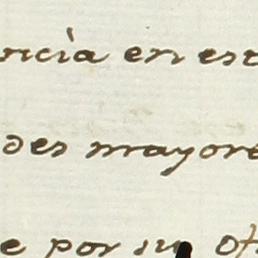 ricia en est
des mayore
e por su ofi